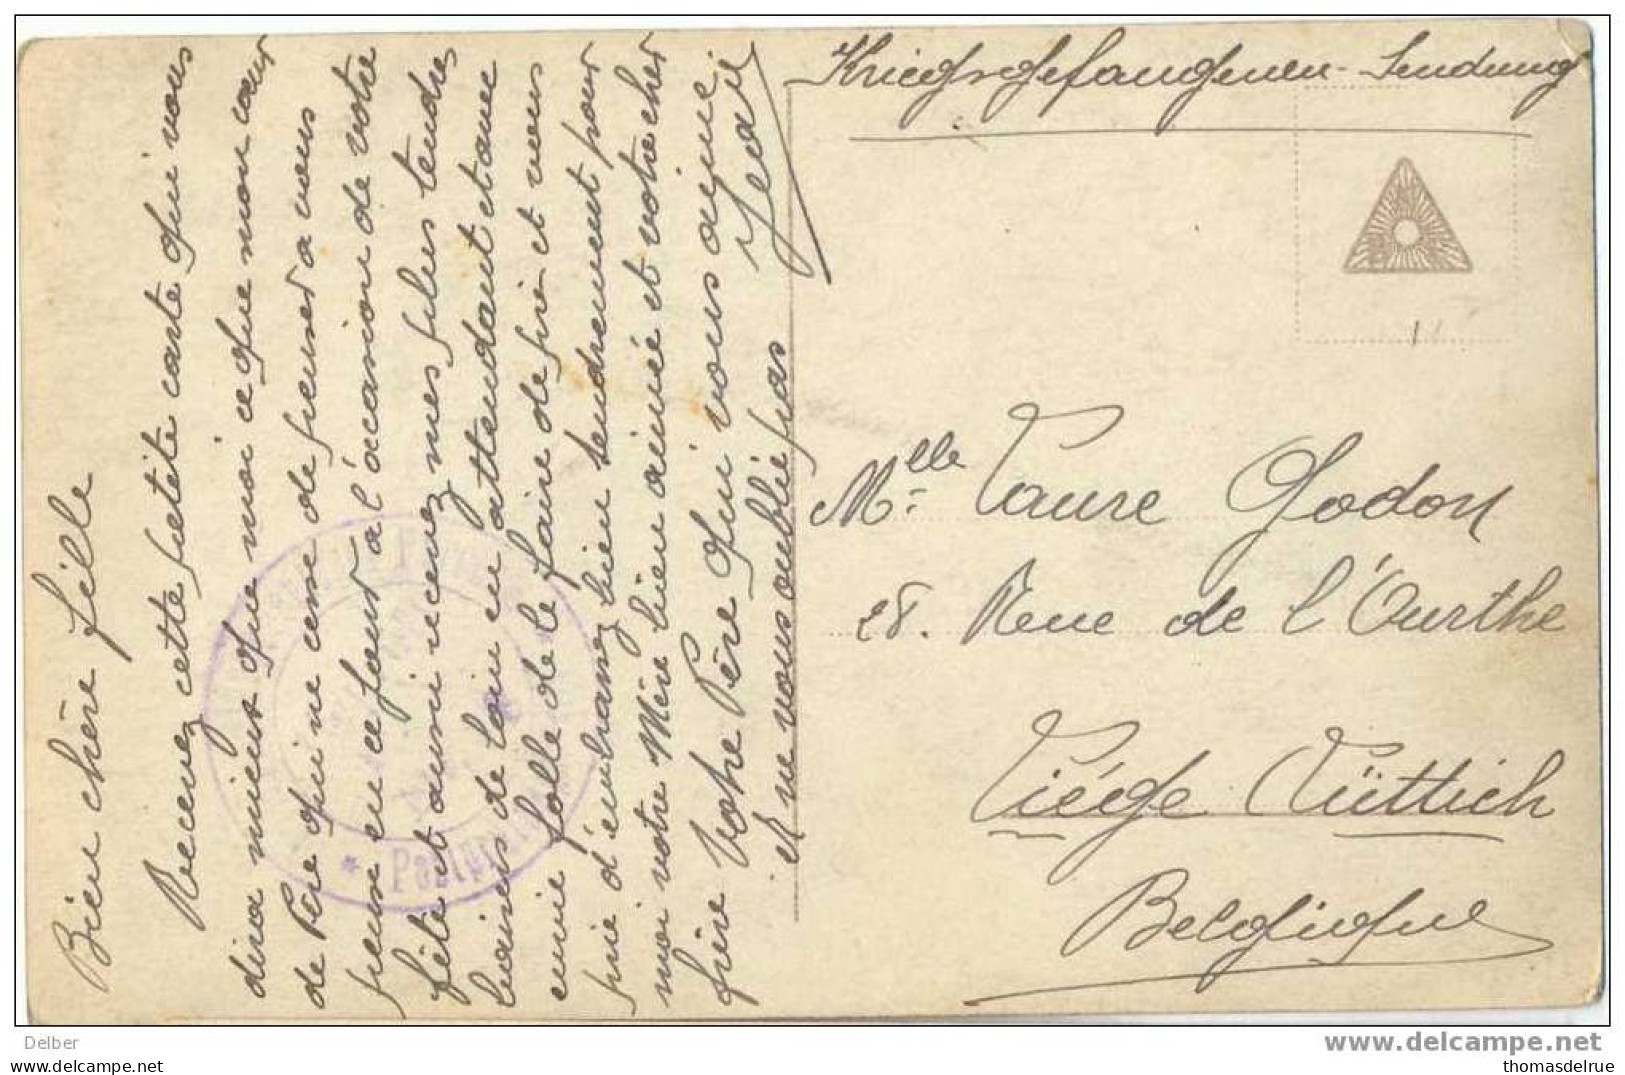 Bien chère fille
Recevez cette petite carte qui vous
dira mieux que moi ce que mon cœur
de Père qui ne cesse de penser a vous
pense en ce jour à l'occasion de votre
fête et aussi recevez mes plus tendres
baisers de loin en attendant et avec
envie folle de le faire de près et vous
prie d'embrassez bien tendrement pour
moi votre Mère bien aimée et votre cher
frère Votre Père qui vous aime
et ne vous oublie pas
Jean
Kriegsgefangenen-Sendung
Mlle Laure Godon
28. Rue de l'Ourthe
Liége Lüttich
Belgique
Delber
www.delcampe.net
thomasdelrue